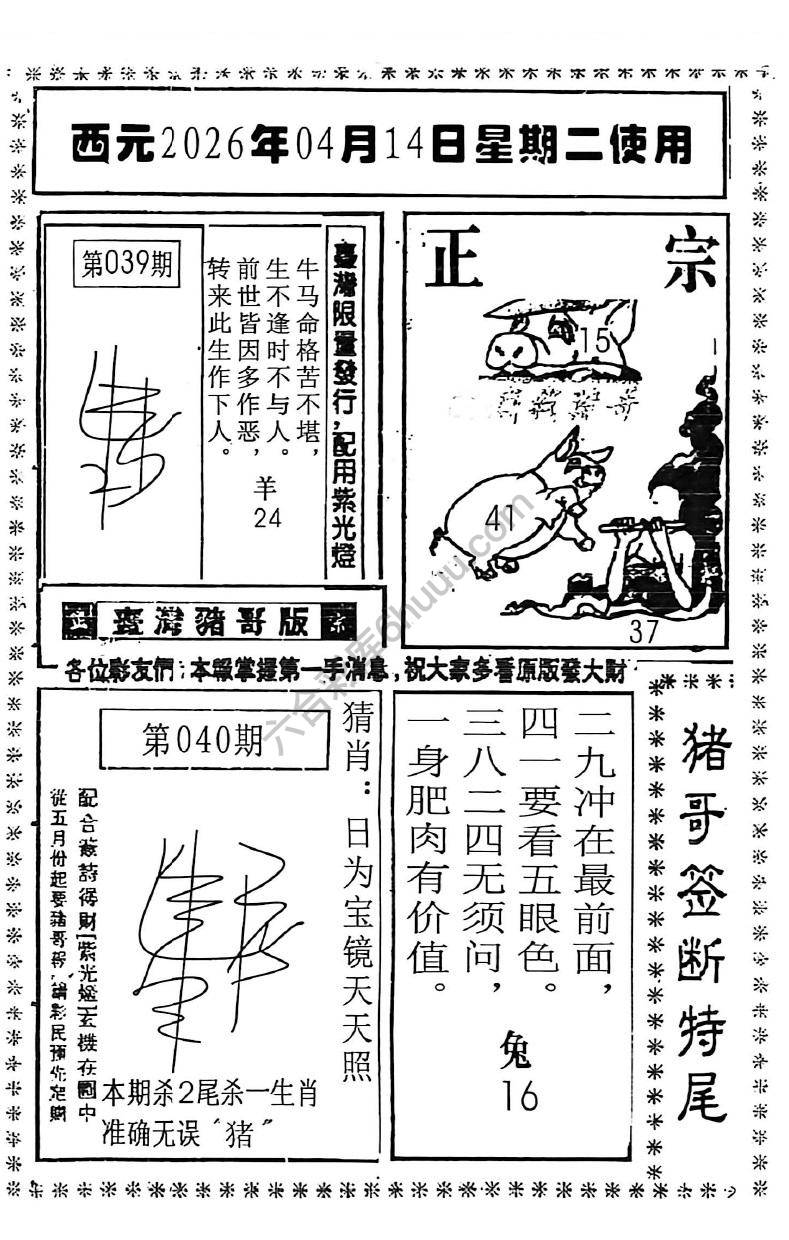 西元2026年04月14日星期二使用
第039期
牛马命格苦不堪，
生不逢时不与人。
前世皆因多作恶，
转来此生作下人。
羊
24
臺灣限量發行，配用紫光燈
正宗
15
41
37
臺灣豬哥版
各位彩友們：本報掌握第一手消息，祝大家多看原版發大財
第040期
猜肖：日为宝镜天天照
從五月份起要豬哥報
彩民預先定購
本期杀2尾杀一生肖
准确无误“猪”
二九冲在最前面，
四一要看五眼色。
三八二四无须问，
一身肥肉有价值。
兔
16
猪哥签断特尾
六合彩库6huuu.com